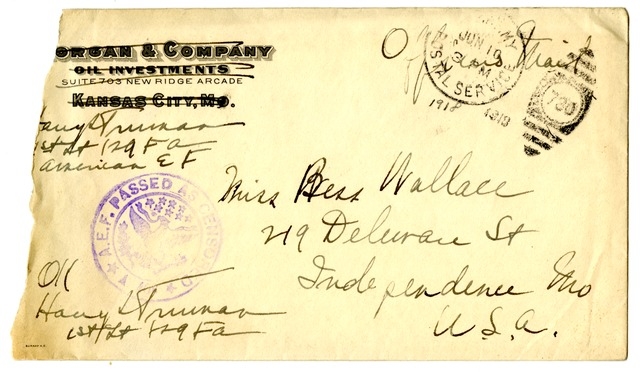 ORGAN & COMPANY
OIL INVESTMENTS
SUITE 703 NEW RIDGE ARCADE
KANSAS CITY, MO.
Harry S Truman
1st Lt 129 FA
American E F
Officers Mail
ARMY
POSTAL SERVICE
JUN 10
M
1918
1918
730
A.E.F. PASSED AS CENSORED
Miss Bess Wallace
219 Delaware St
Independence Mo
U.S.A.
OK
Harry S Truman
1st Lt 129 FA